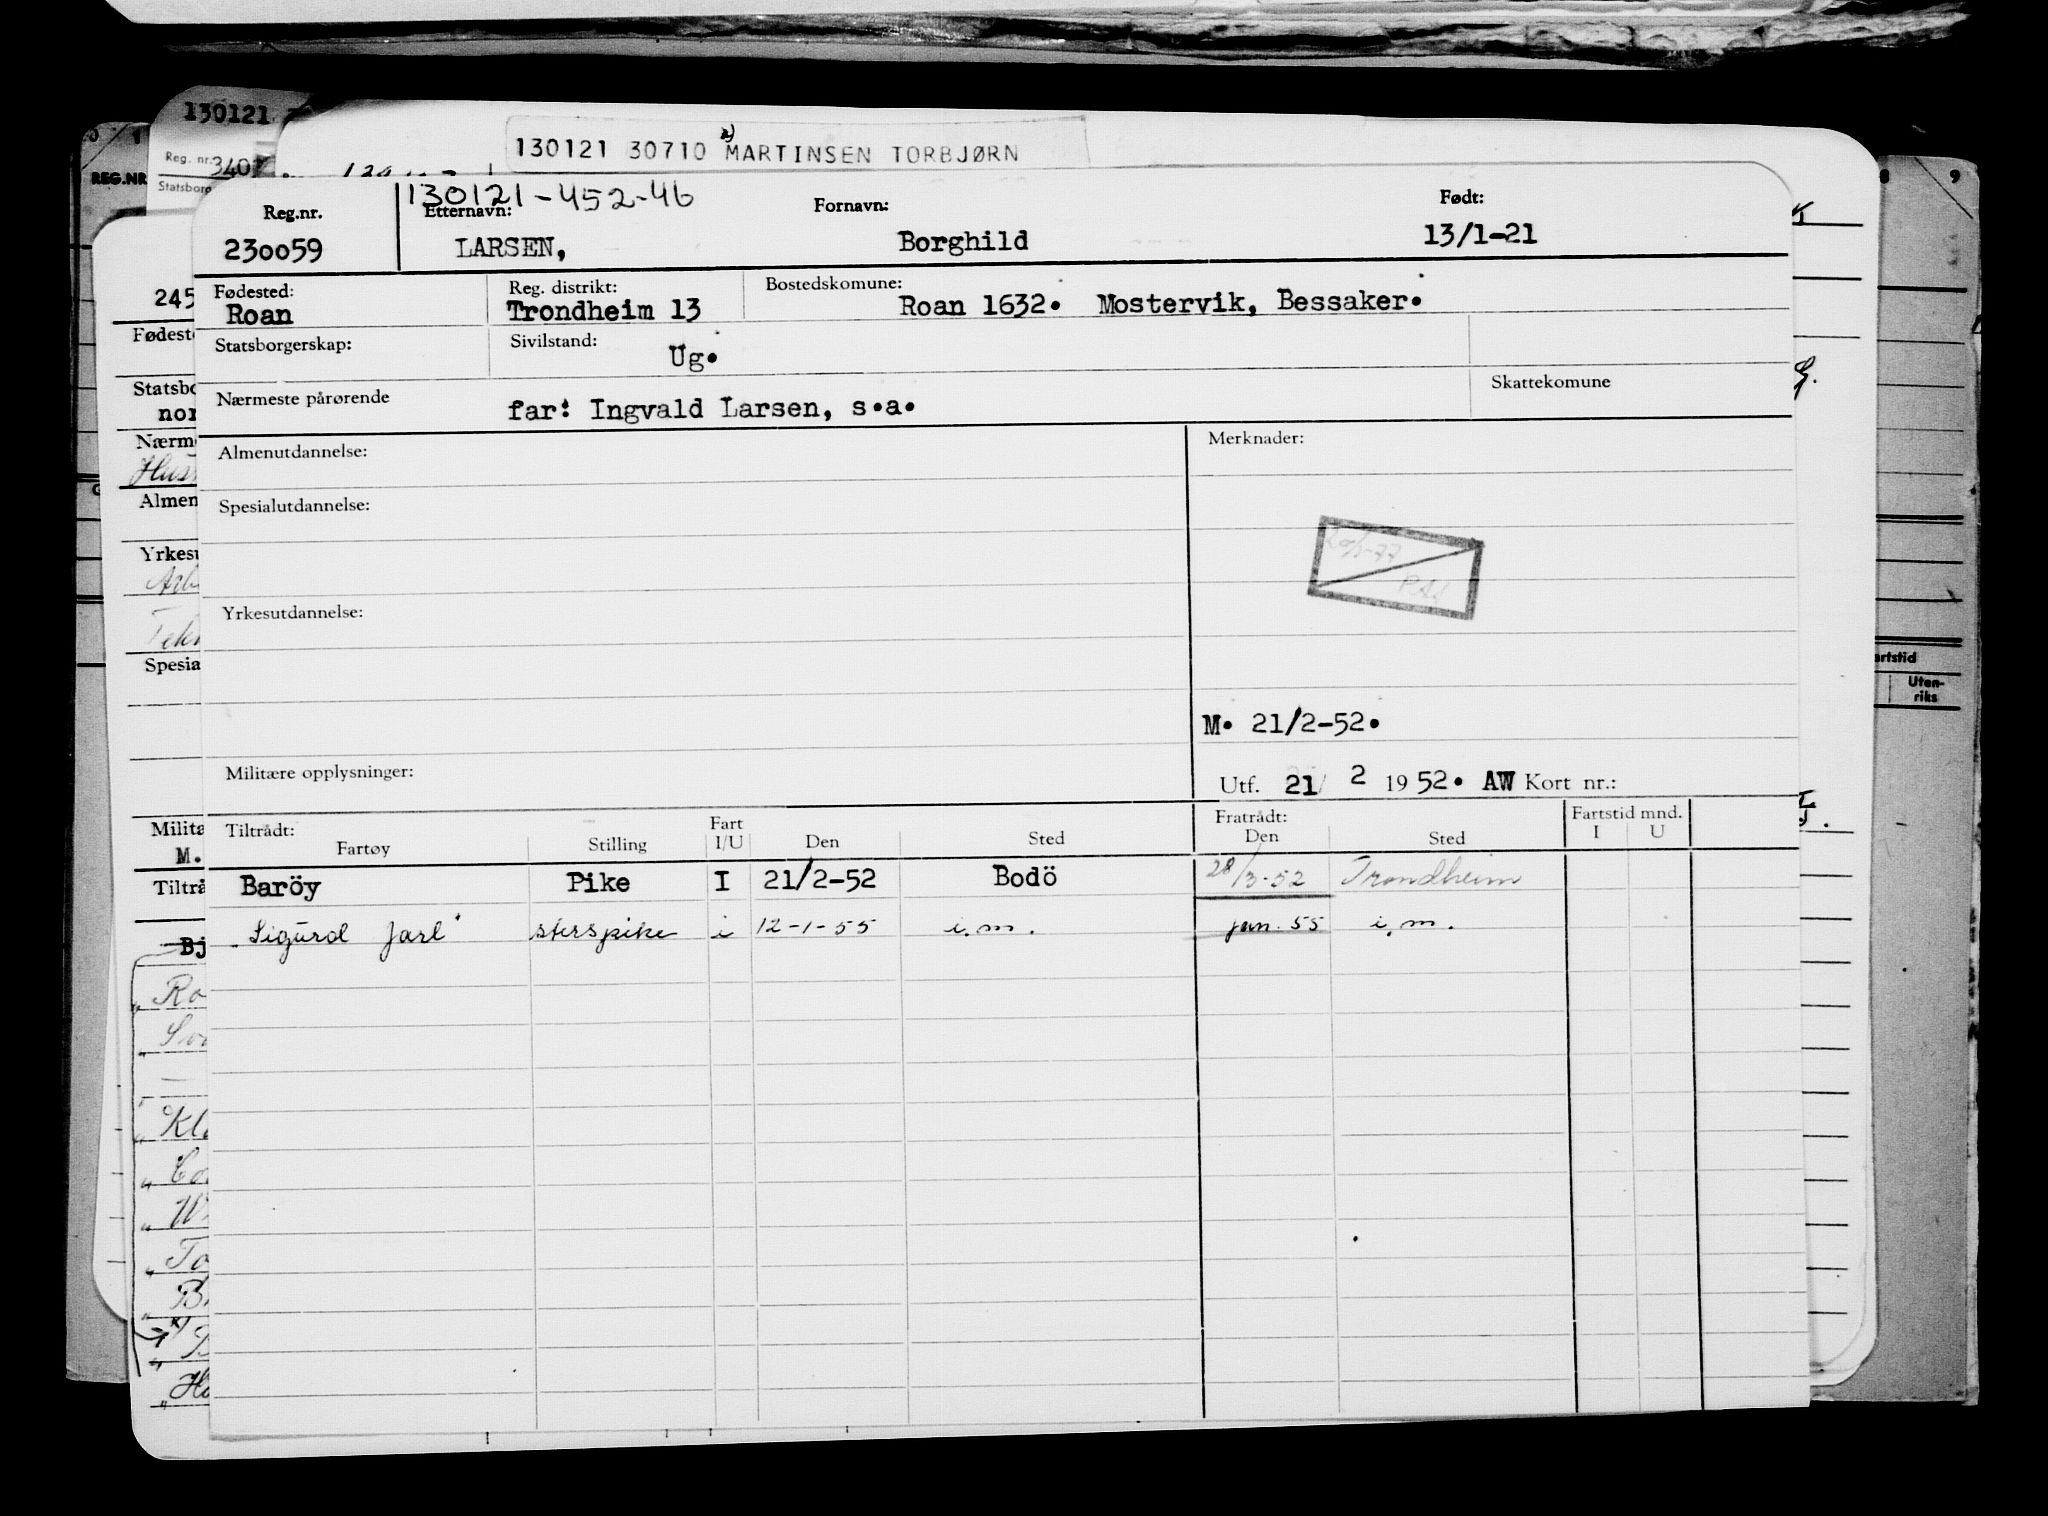 130121
Reg. nr. 340
Statsborg
130121 30710 MARTINSEN TORBJØRN
REG.NR
8 9
130121-452-46
Reg.nr. Etternavn: Fornavn: Født:
230059 LARSEN, Borghild 13/1-21
Fødested: Reg. distrikt: Bostedskomune:
Roan Trondheim 13 Roan 1632. Mostervik, Bessaker.
Statsborgerskap: Sivilstand: Ug.
Nærmeste pårørende far: Ingvald Larsen, s.a. Skattekomune
Almenutdannelse: Merknader:
Spesialutdannelse:
Yrkesutdannelse:
M. 21/2-52.
Militære opplysninger: Utf. 21/ 2 1952. AW Kort nr.:
Tiltrådt: Fart Fratrådt: Fartstid mnd.
Fartøy Stilling I/U Den Sted Den Sted I U
Baröy Pike I 21/2-52 Bodö 28/3-52 Trondheim
"Sigurd Jarl" sterspike i 12-1-55 i.m. jan. 55 i.m.
245
Fødeste
Statsbo
nor
Nærm
Almen
Yrkesu
Spesia
Milita
M.
Tiltrå
Bj
Ro
Kl
To
artstid
Uten-
riks